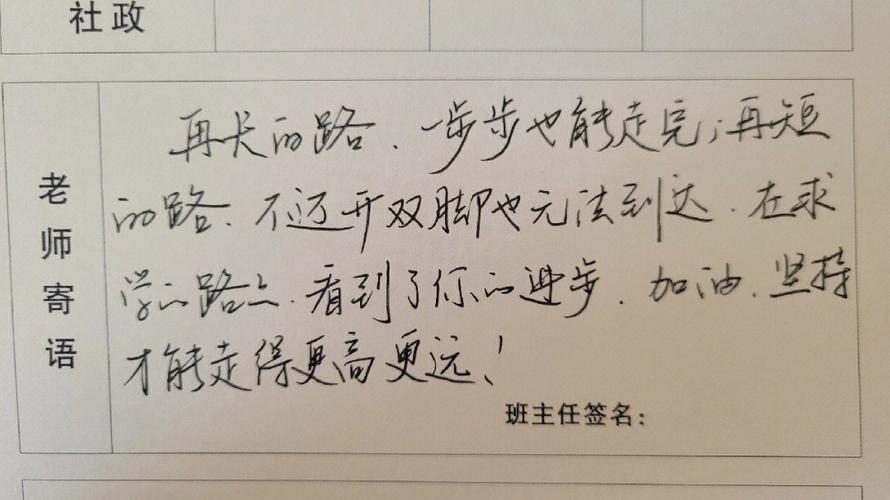 社政
老师寄语
再长的路、一步步也能走完;再短
的路、不迈开双脚也无法到达.在求
学的路上.看到了你的进步.加油、坚持
才能走得更高更远!
班主任签名: